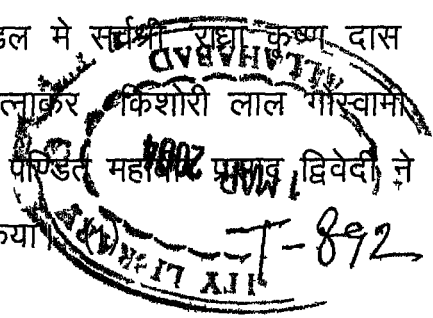 डल मे सर्वश्री राधा कृष्ण दास
त्नाकर किशोरी लाल गोस्वामी
पण्डित महाबीर प्रसाद द्विवेदी ने
कया।
T-892
ALLAHABAD
MAR 2004